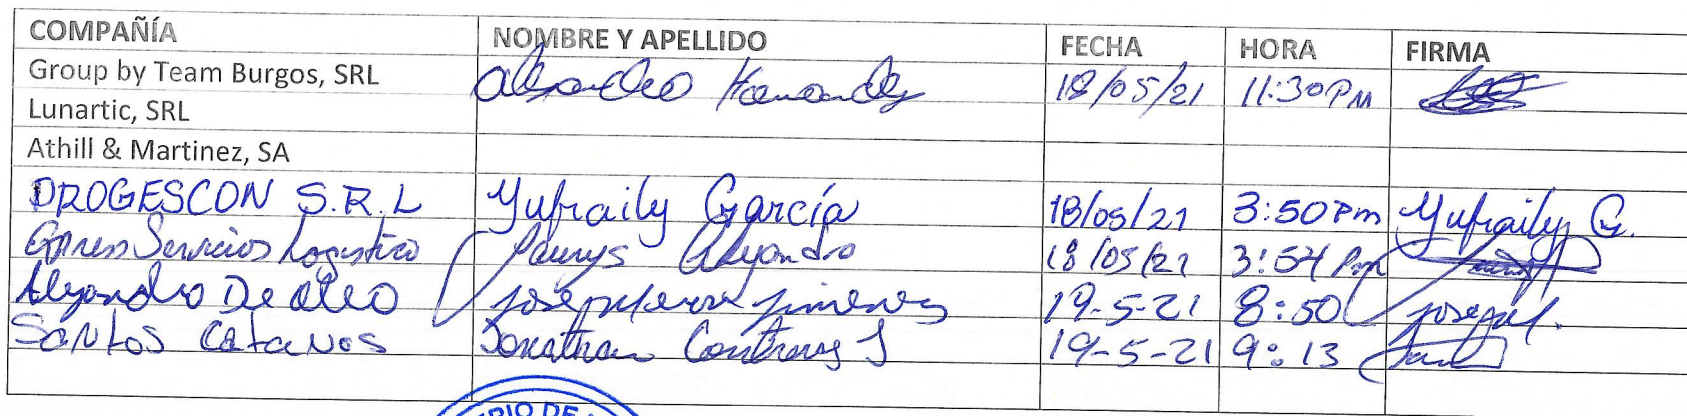 COMPAÑÍA NOMBRE Y APELLIDO FECHA HORA FIRMA
Group by Team Burgos, SRL Hernandez 18/05/21 11:30 PM
Lunartic, SRL
Athill & Martinez, SA
PROGESCON S.R.L Yufraily García 18/05/21 3:50 Pm Yufraily G.
Servicios Logistico Alejandro 18/05/21 3:54 Pm
Alejandro De Oleo Jose Jimenez 19-5-21 8:50
Santos Jonathan Contreras J 19-5-21 9:13
RIO DE